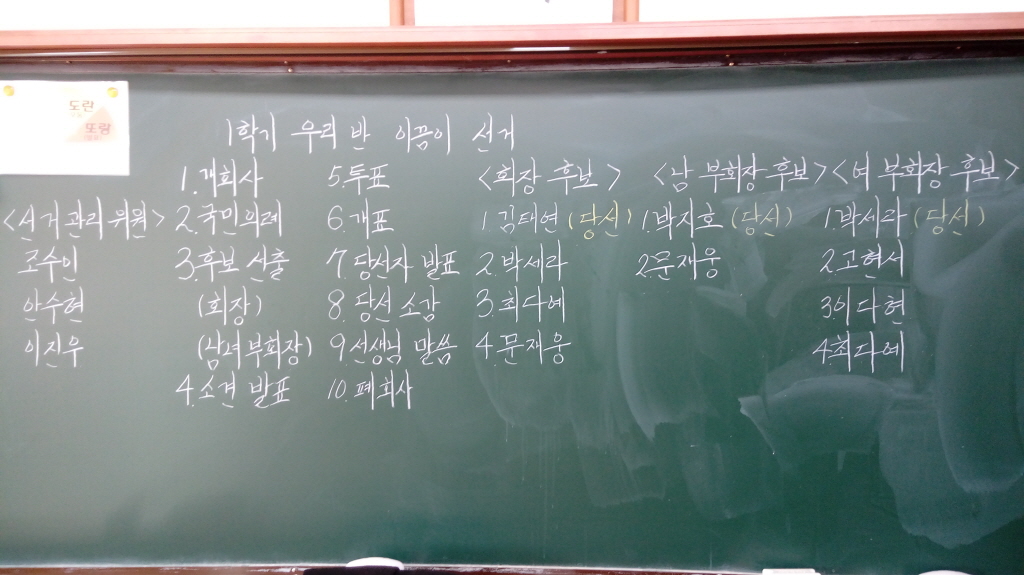 도란
또랑
1학기 우리 반 이끔이 선거
<선거관리위원>
조수인
안수현
이진우
1. 개회사
2. 국민의례
3. 후보 선출
(회장)
(남녀 부회장)
4. 소견 발표
5. 투표
6. 개표
7. 당선자 발표
8. 당선 소감
9. 선생님 말씀
10. 폐회사
<회장 후보>
1. 김태연 (당선)
2. 박세라
3. 최다예
4. 문재웅
<남 부회장 후보>
1. 박지호 (당선)
2. 문재웅
<여 부회장 후보>
1. 박세라 (당선)
2. 고현서
3. 이다현
4. 최다예